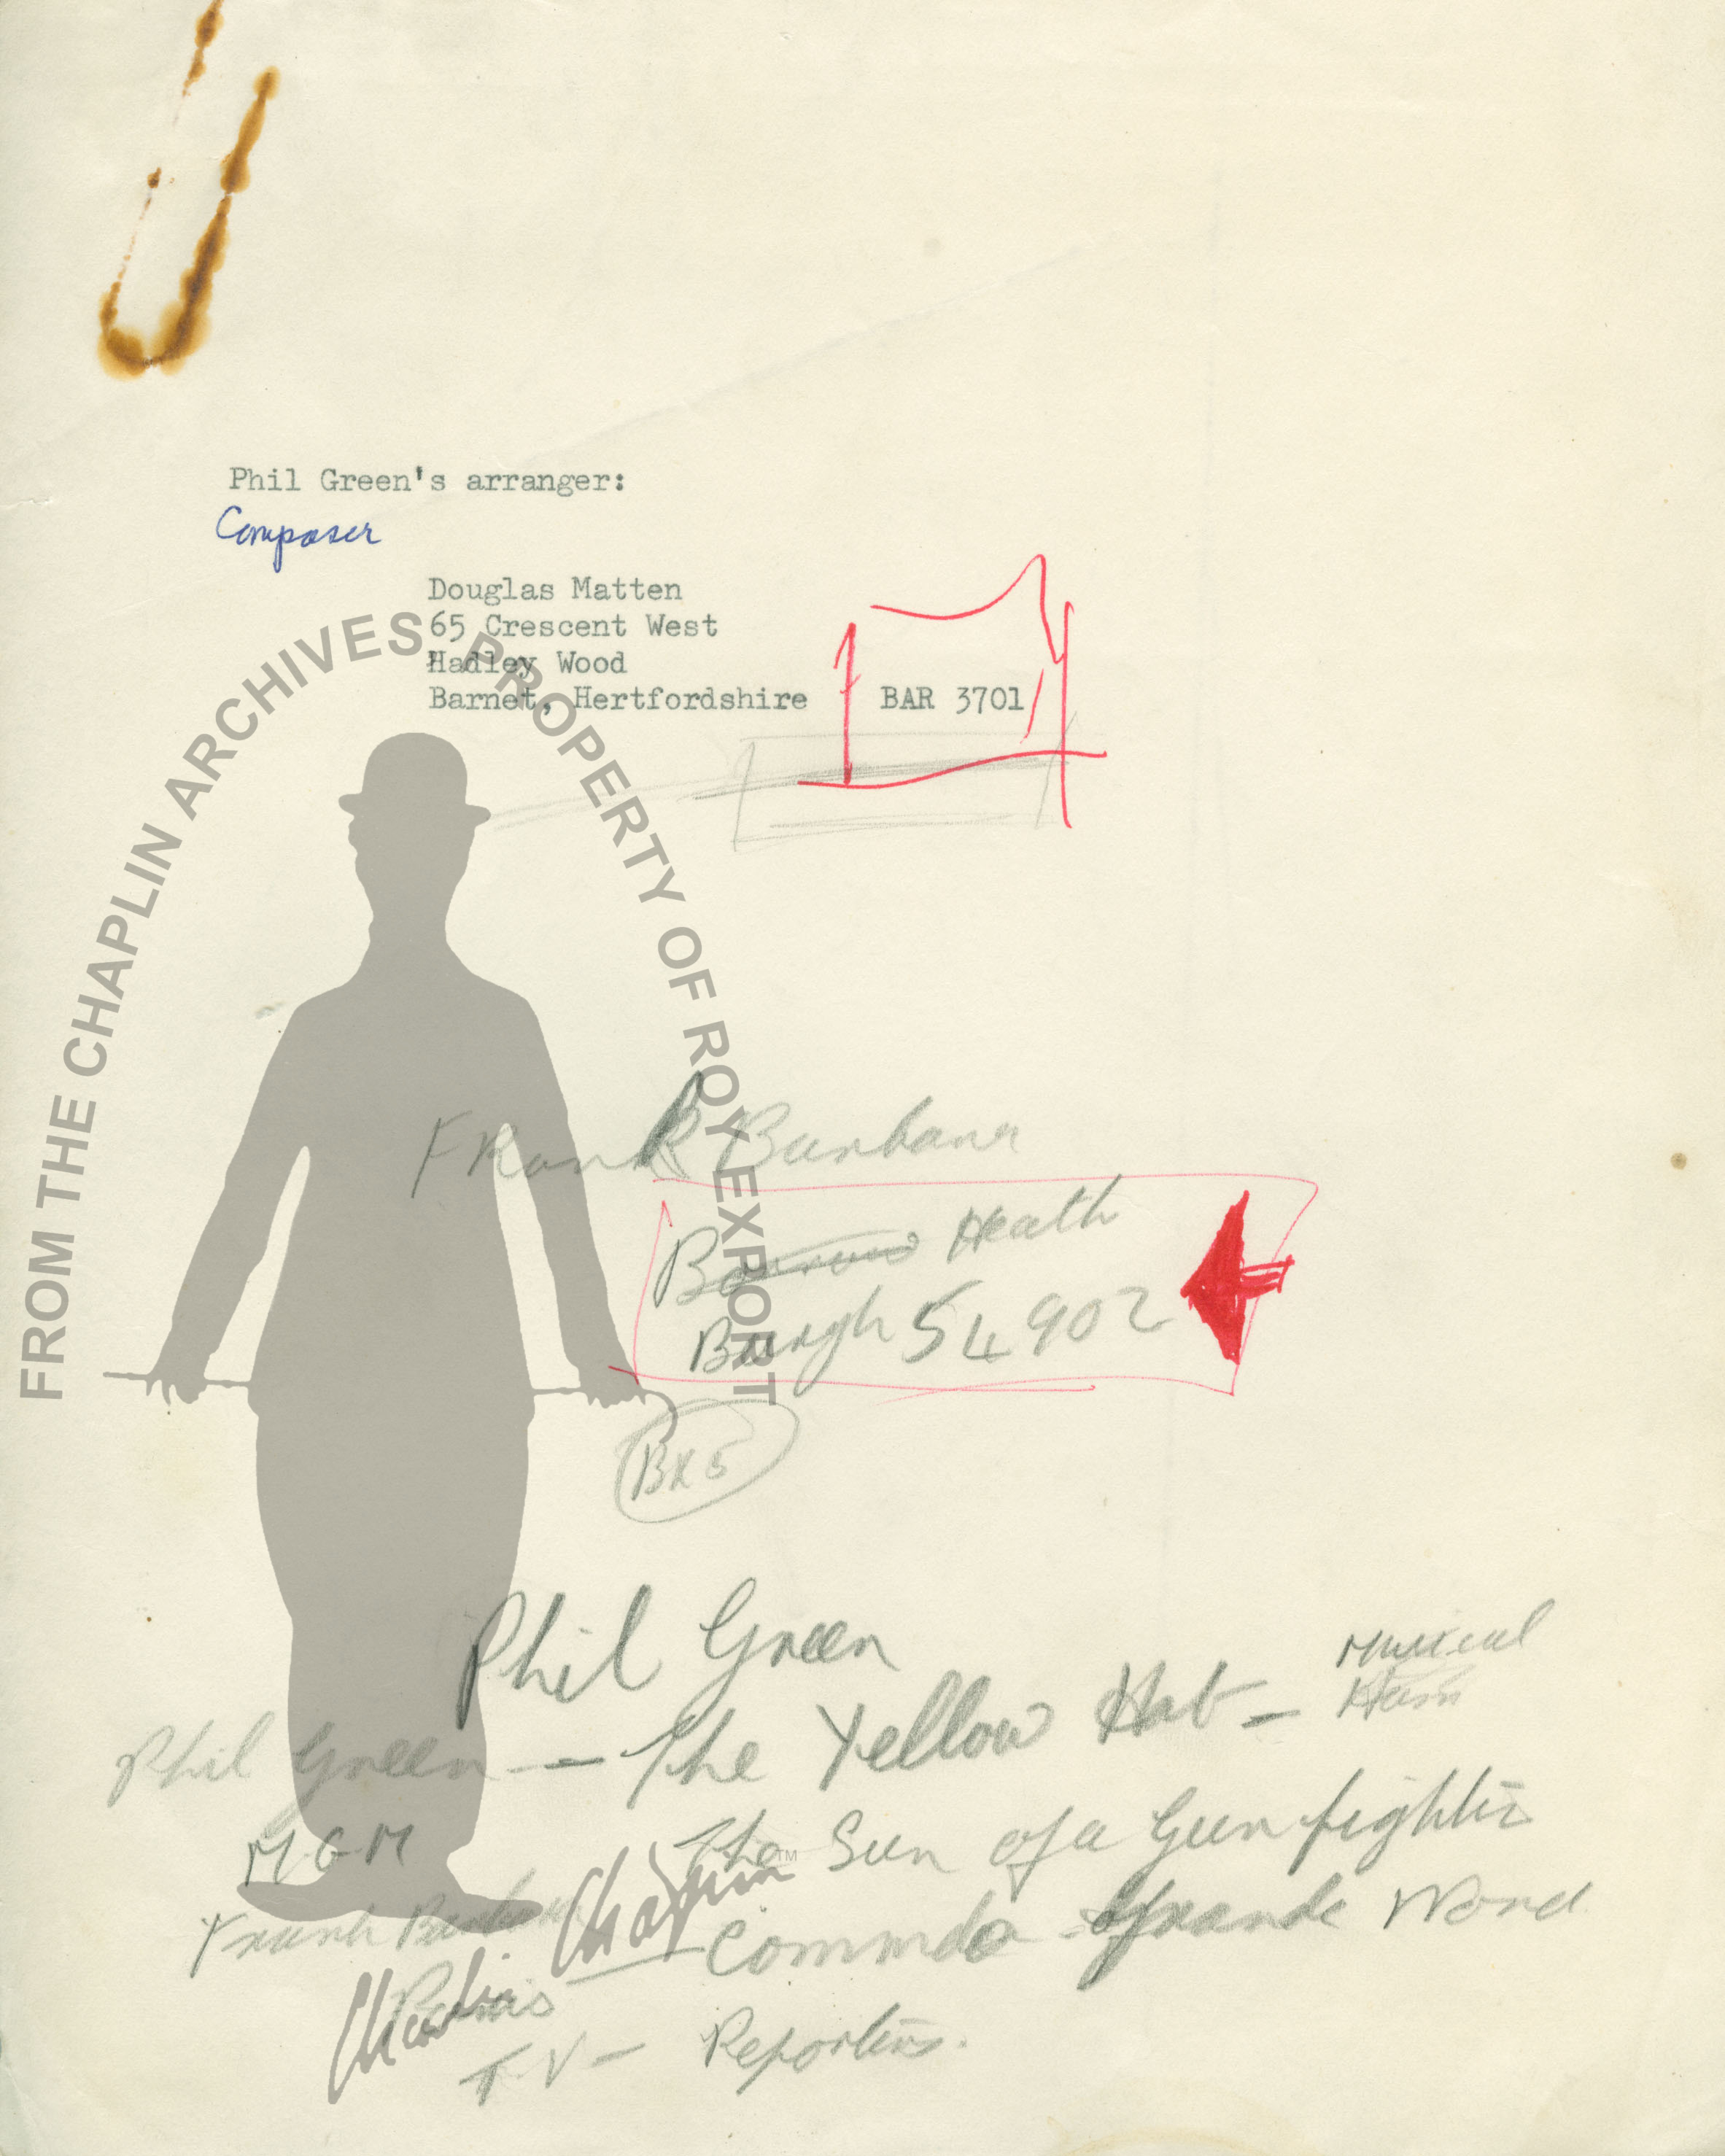 Phil Green's arranger:
Composer
Douglas Matten
65 Crescent West
Hadley Wood
Barnet, Hertfordshire BAR 3701
FRank Barbana
Barrow Heath
Burgh 54902
BX5
Phil Green
Musical
Phil Green — The Yellow Hat —
M.G.M The Sun of a Gun fighter
Frank
Grande Word
T.V — Reporters.
FROM THE CHAPLIN ARCHIVES PROPERTY OF ROY EXPORT
Charlie Chaplin™